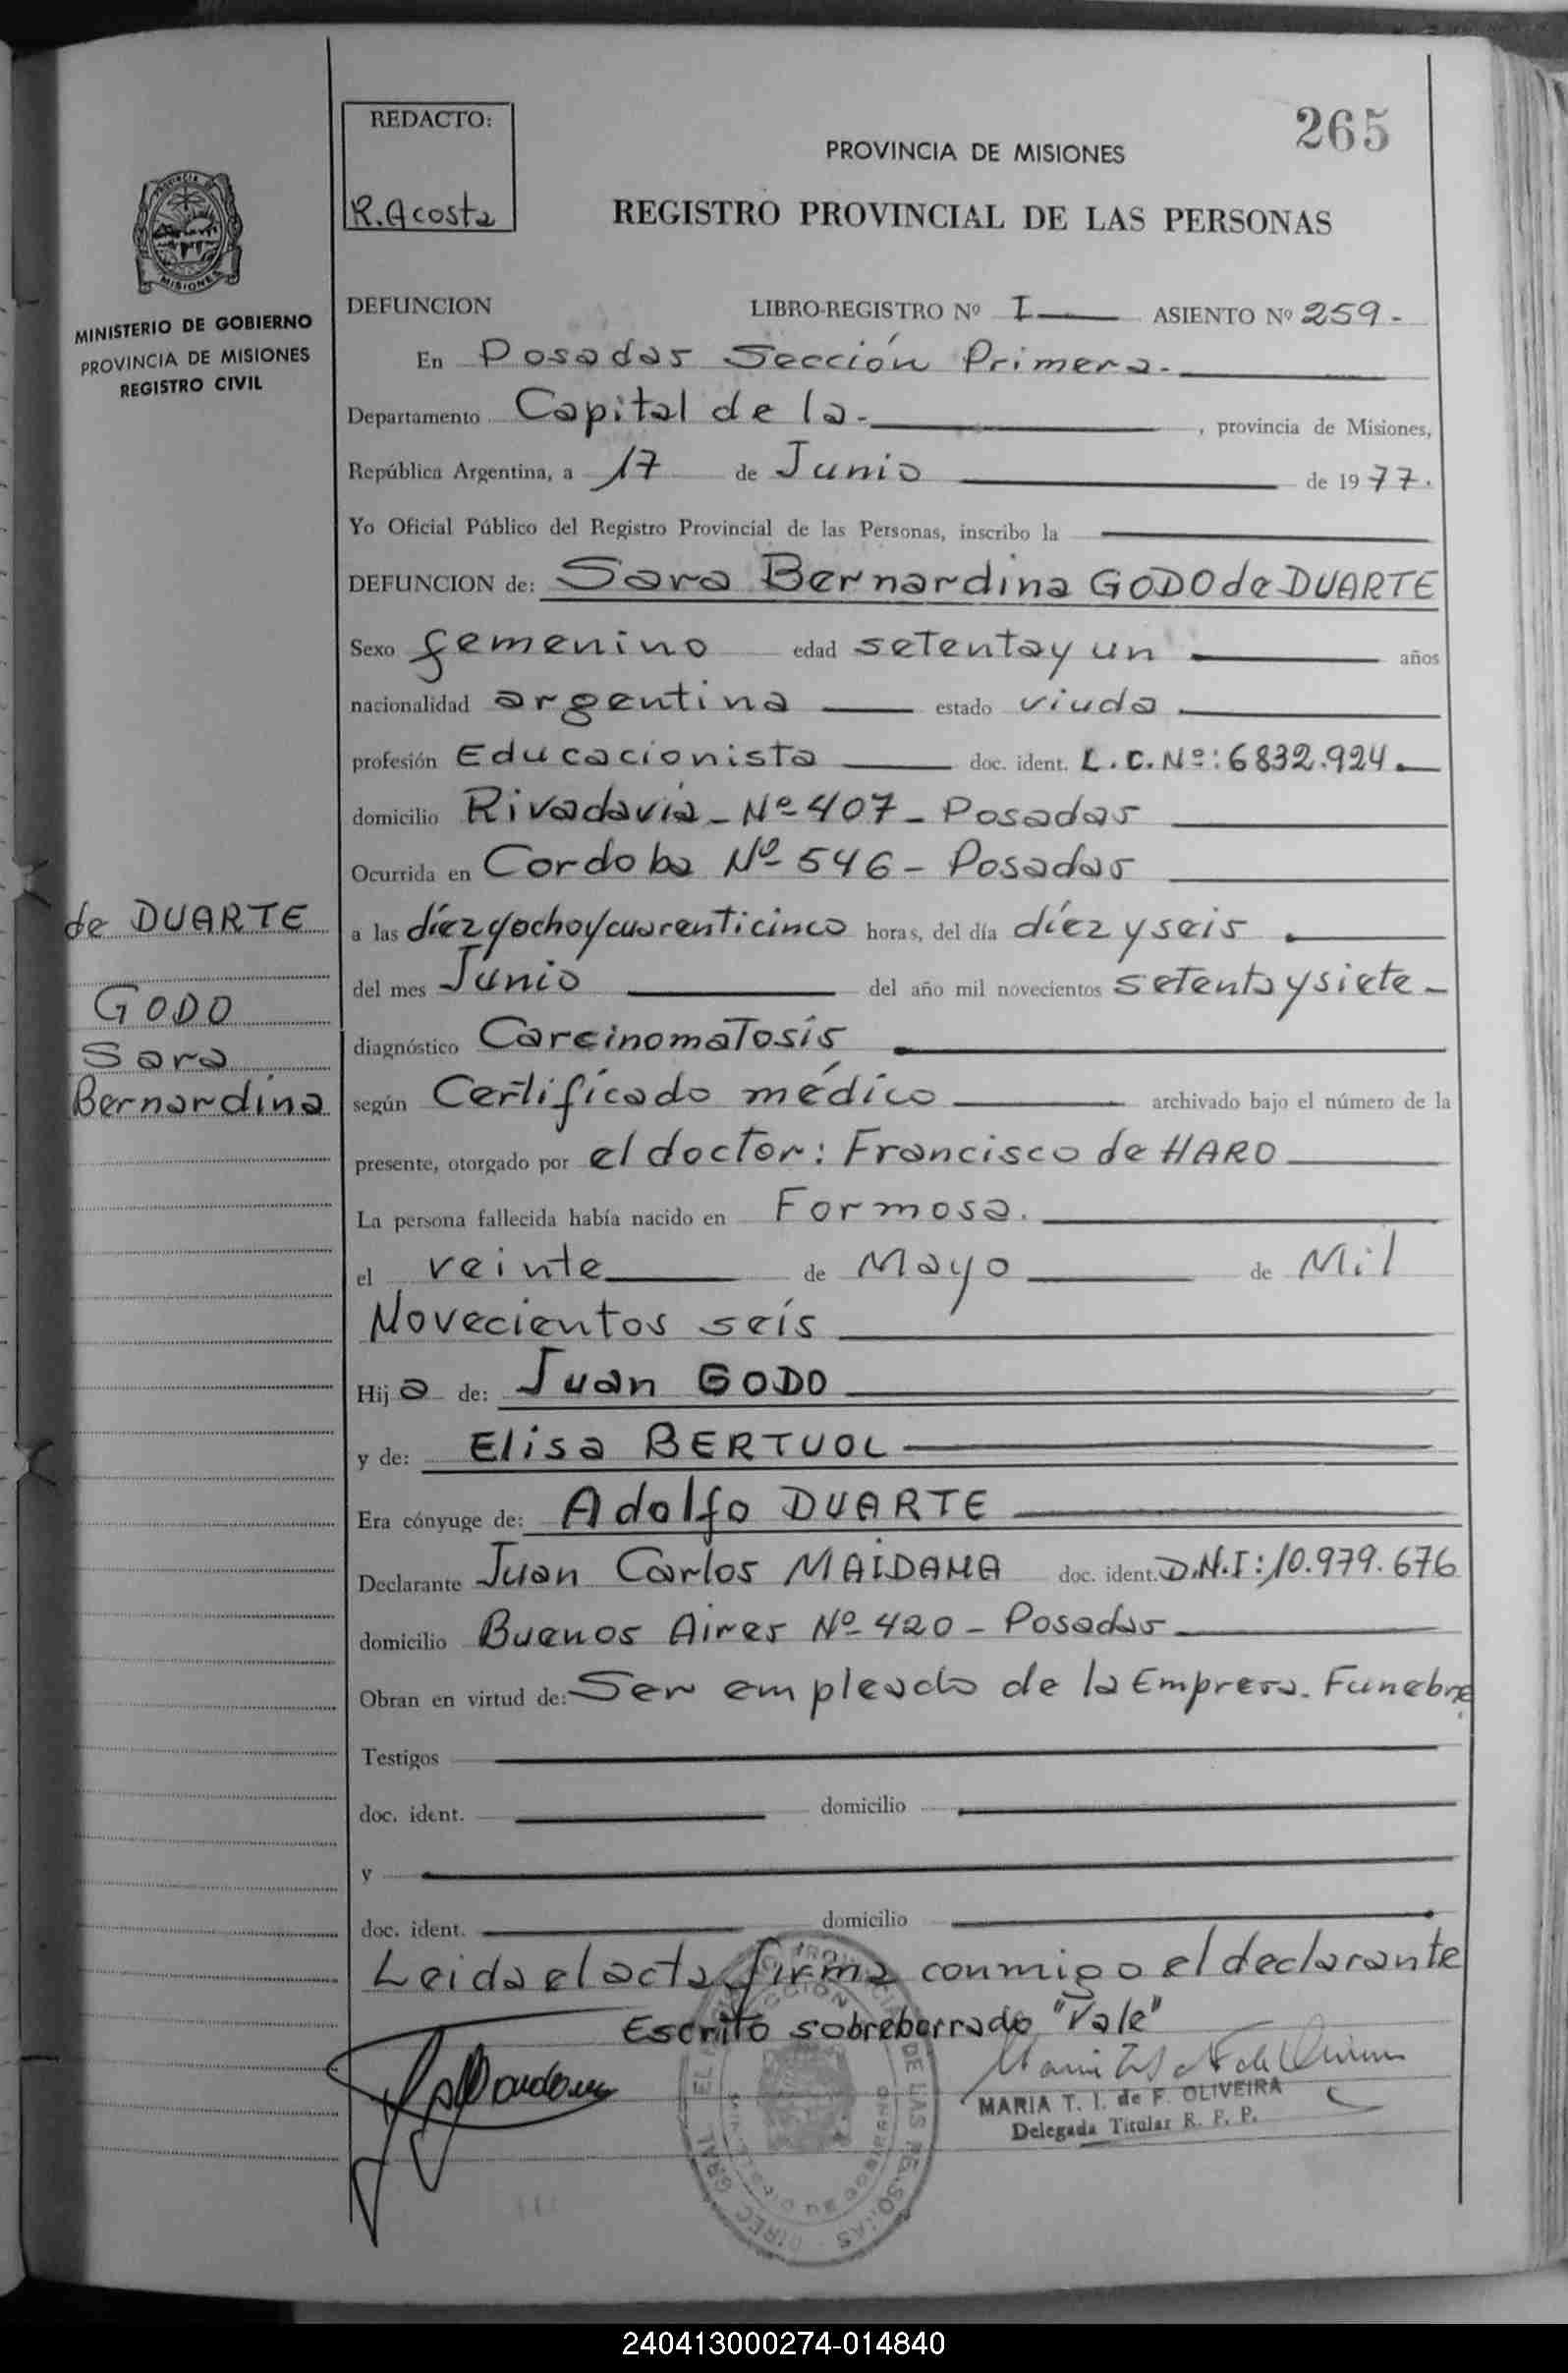 265
REDACTO:
R. Acosta
PROVINCIA DE MISIONES
REGISTRO PROVINCIAL DE LAS PERSONAS
MISIONES
MINISTERIO DE GOBIERNO
PROVINCIA DE MISIONES
REGISTRO CIVIL
DEFUNCION LIBRO-REGISTRO Nº I ASIENTO Nº 259.-
En Posadas Sección Primera.-
Departamento Capital de la.- , provincia de Misiones,
República Argentina, a 17 de Junio de 1977.
Yo Oficial Público del Registro Provincial de las Personas, inscribo la
DEFUNCION de: Sara Bernardina GODO de DUARTE
Sexo femenino edad setenta y un años
nacionalidad argentina estado viuda
profesión Educacionista doc. ident. L.C.Nº: 6832.924.
domicilio Rivadavia - Nº 407 - Posadas
Ocurrida en Cordoba Nº 546 - Posadas
a las díez y ocho y cuarenticinco horas, del día díez y seis
del mes Junio del año mil novecientos setenta y siete -
diagnóstico Carcinomatosis
según Certificado médico archivado bajo el número de la
presente, otorgado por el doctor: Francisco de HARO
La persona fallecida había nacido en Formosa.
el veinte de Mayo de Mil
Novecientos seís
Hija de: Juan GODO
y de: Elisa BERTUOL
Era cónyuge de: Adolfo DUARTE
Declarante Juan Carlos MAIDANA doc. ident. D.N.I: 10.979.676
domicilio Buenos Aires Nº 420 - Posadas
Obran en virtud de: Ser empleado de la Empresa. Funebre
Testigos
doc. ident. domicilio
y
doc. ident. domicilio
Leida el acta firma conmigo el declarante
Escrito sobreborrado "Vale"
MARIA T. I. de F. OLIVEIRA
Delegada Titular R. P. P.
de DUARTE
GODO
Sara
Bernardina
240413000274-014840